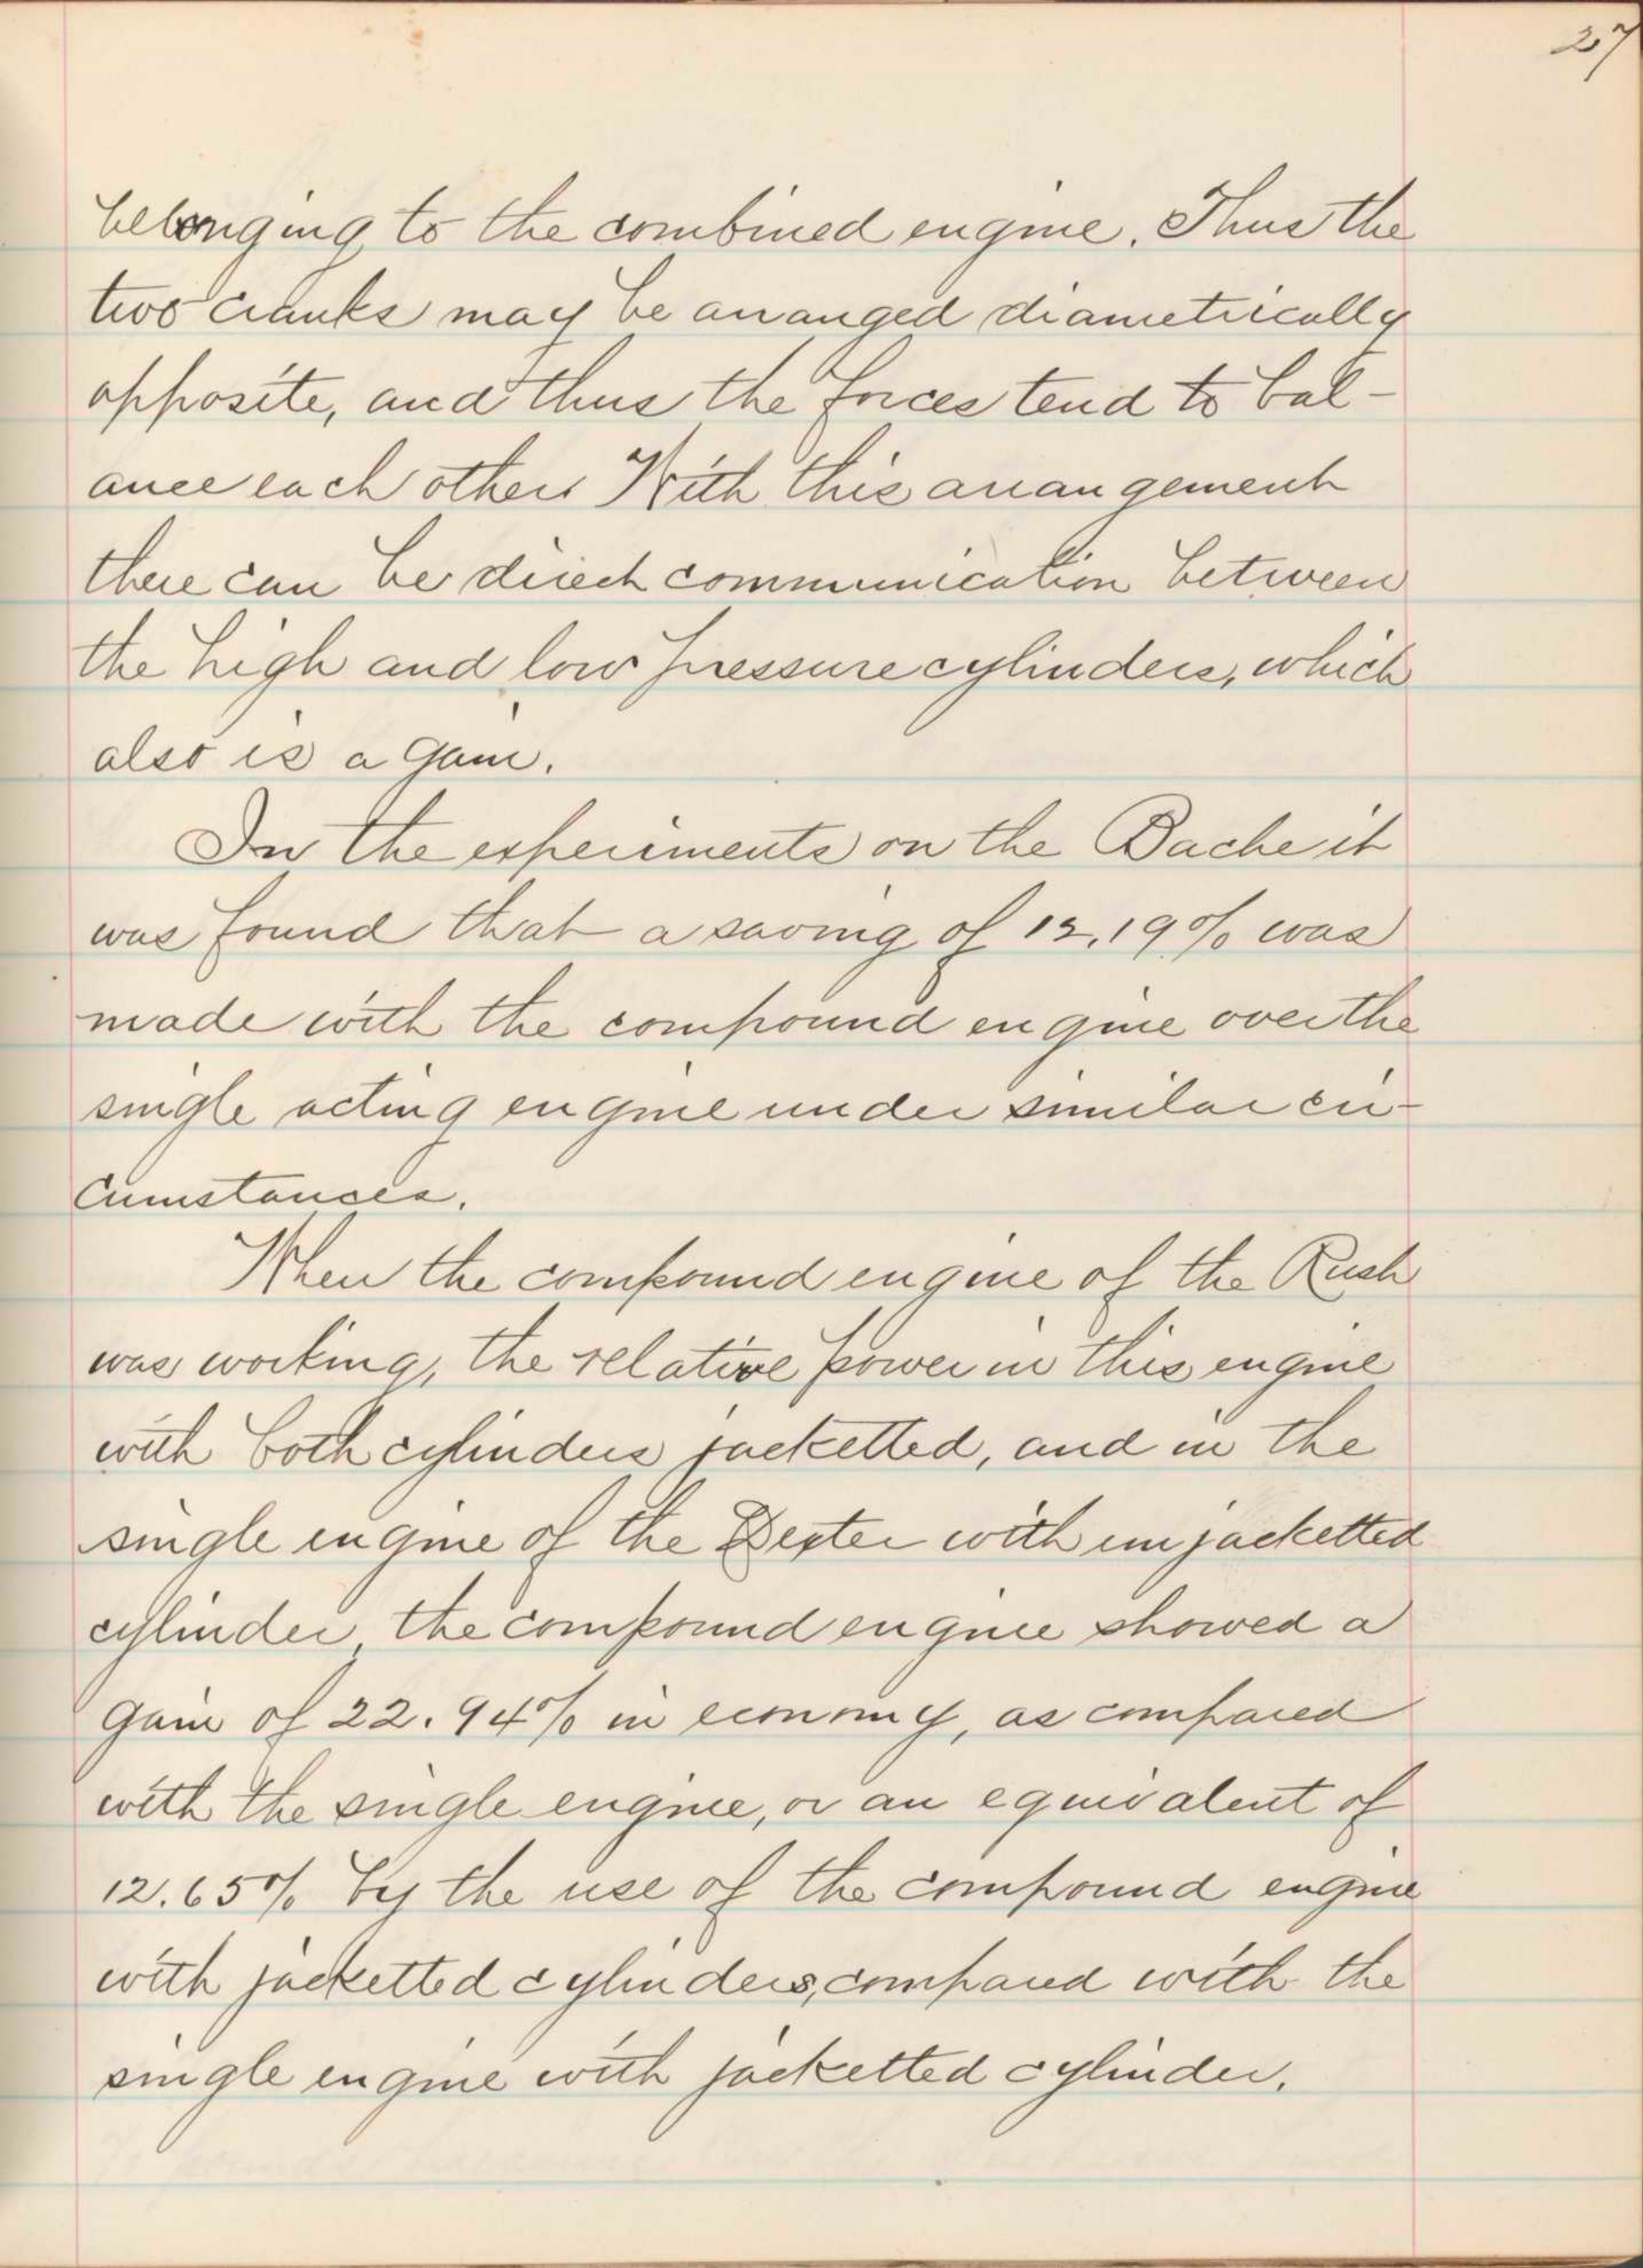 27
belonging to the combined engine. Thus the
two cranks may be arranged diametrically
opposite, and thus the forces tend to bal-
ance each other. With this arrangement
there can be direct communication between
the high and low pressure cylinders, which
also is a gain.
In the experiments on the Bache it
was found that a saving of 12.19% was
made with the compound engine over the
single acting engine under similar cir-
cumstances.
When the compound engine of the Rush
was working, the relative power in this engine
with both cylinders jacketted, and in the
single engine of the Dexter with unjacketted
cylinder, the compound engine showed a
gain of 22.94% in economy, as compared
with the single engine, or an equivalent of
12.65% by the use of the compound engine
with jacketted cylinders, compared with the
single engine with jacketted cylinder.